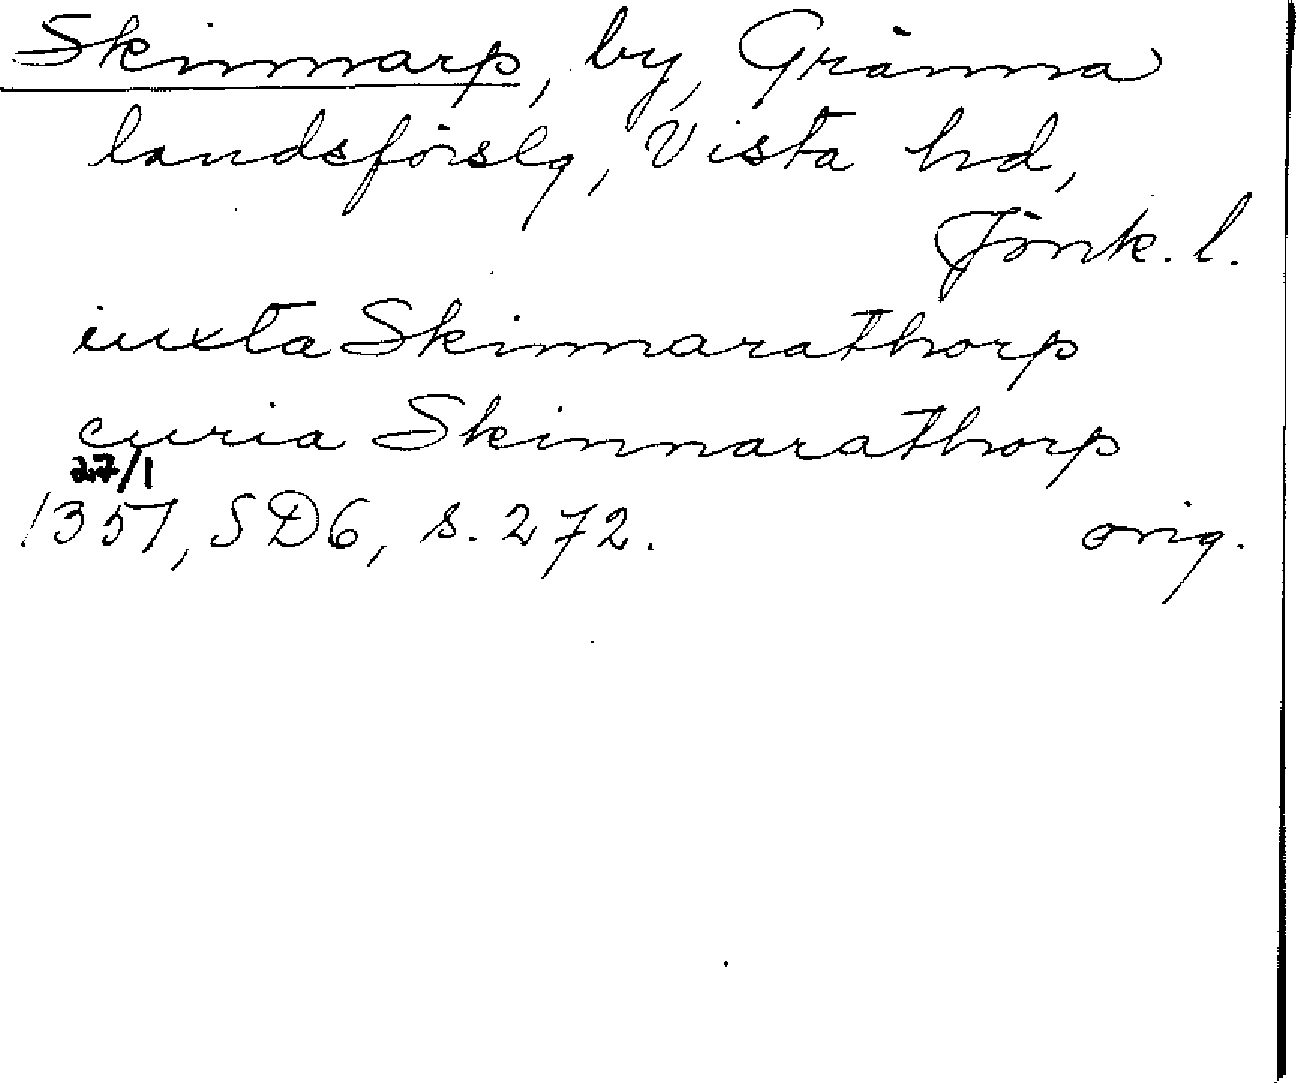 Skinnarp, by, Gränna
landsförslg, Vista hd,
Jönk. l.
iuxta Skinnarathorp
curia Skinnarathorp
27/1
1351, SD6, s. 272. orig.